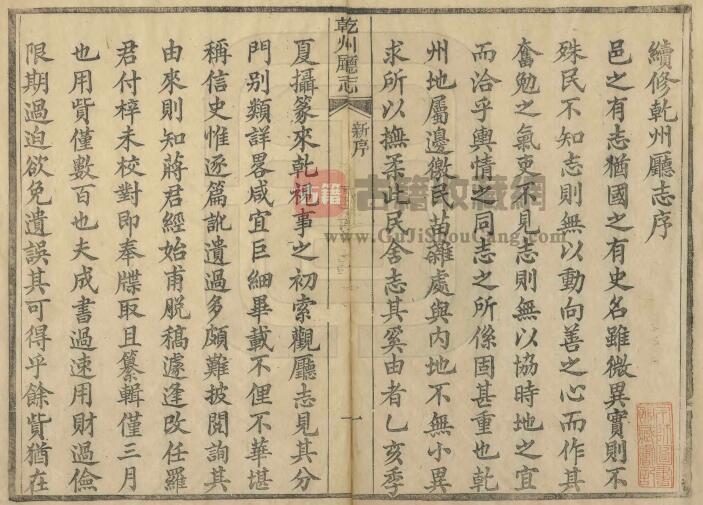 續修乾州廳志序
邑之有志猶國之有史名雖微異實則不
殊民不知志則無以動向善之心而作其
奮勉之氣吏不見志則無以協時地之宜
而洽乎輿情之同志之所係固甚重也乾
州地屬邊徼民苗雜處與内地不無小異
求所以撫柔此民舍志其奚由者乙亥季
乾州廳志
新序
一
夏攝篆來乾視事之初索觀廳志見其分
門别類詳畧咸宜巨細畢載不俚不華堪
稱信史惟逐篇訛遺過多頗難披閱詢其
由來則知蔣君經始甫脱稿遽逢改任羅
君付梓未校對即奉牒取且纂輯僅三月
也用貲僅數百也夫成書過速用財過儉
限期過迫欲免遺誤其可得乎餘貲猶在
古籍
古籍收藏網
www.GuJiShouCang.com